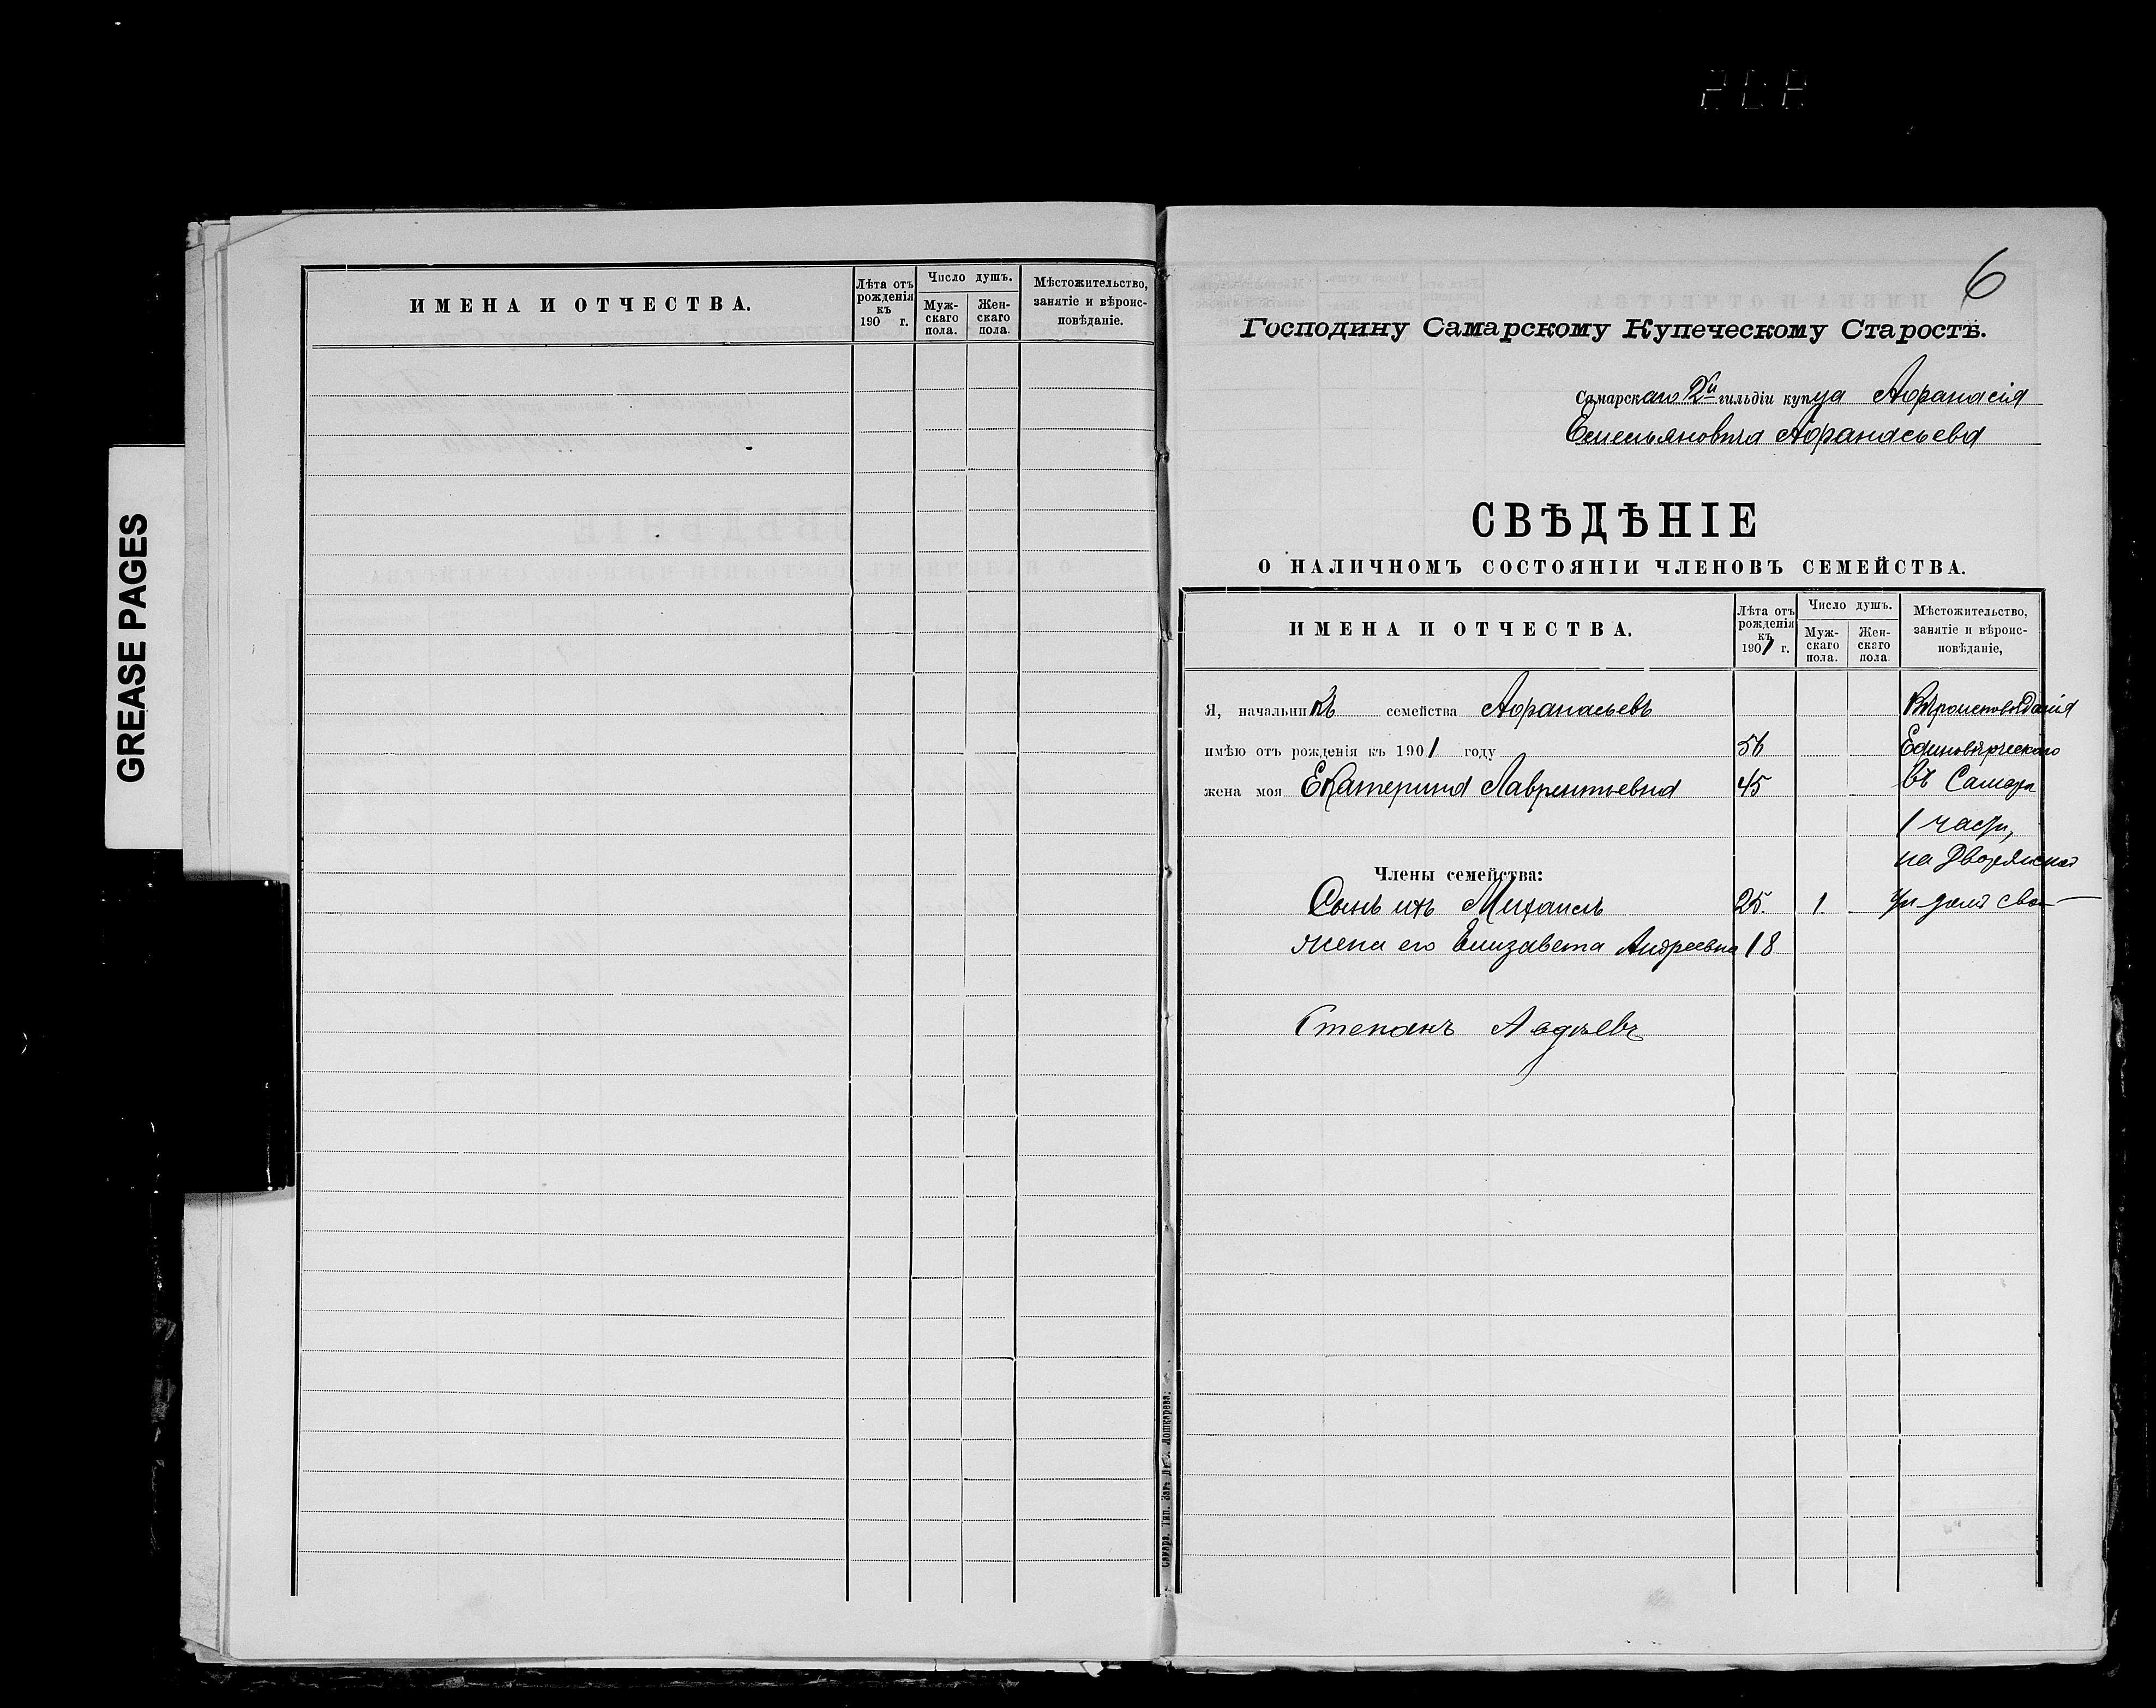 GREASE PAGES
ИМЕНА И ОТЧЕСТВА.
Лѣта отъ рожденія къ 190 г.
Число душъ.
Муж-скаго пола.
Жен-скаго пола.
Мѣстожительство, занятіе и вѣроис-повѣданіе.
6
Господину Самарскому Купеческому Старостѣ.
Самарскаго 2й гильдіи купца Афанасія
Емельяновича Афанасьева
СВѢДѢНІЕ
О НАЛИЧНОМЪ СОСТОЯНІИ ЧЛЕНОВЪ СЕМЕЙСТВА.
ИМЕНА И ОТЧЕСТВА.
Лѣта отъ рожденія къ 1901 г.
Число душъ.
Муж-скаго пола.
Жен-скаго пола.
Мѣстожительство, занятіе и вѣроис-повѣданіе,
Я, начальникъ семейства Афанасьевъ Вѣроисповѣданія
имѣю отъ рожденія къ 1901 году 56 Единовѣрческаго
жена моя Екатерина Лаврентьевна 45 въ Самарѣ
1 части,
на Дворянской
Члены семейства:
Сынъ ихъ Михаилъ 25. 1. домъ
жена его Елизавета Андреевна 18
Степанъ Авдѣевъ
Самара. Тип. Лошкарева.